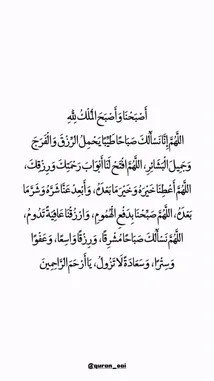 أَصْبَحْنَا وَأَصْبَحَ الْمُلْكُ لِلَّهِ
اللَّهُمَّ إِنَّا نَسْأَلُكَ صَبَاحًا طَيِّبًا يَحْمِلُ الرِّزْقَ وَالْفَرَجَ
وَجَمِيلَ الْبَشَائِرِ، اللَّهُمَّ افْتَحْ لَنَا أَبْوَابَ رَحْمَتِكَ وَرِزْقِكَ،
اللَّهُمَّ أَعْطِنَا خَيْرَهُ وَخَيْرَ مَا بَعْدَهُ، وَأَبْعِدْ عَنَّا شَرَّهُ وَشَرَّ مَا
بَعْدَهُ، اللَّهُمَّ صَبِّحْنَا بِدَفْعِ الْهُمُومِ، وَارْزُقْنَا عَافِيَةً تَدُومُ،
اللَّهُمَّ نَسْأَلُكَ صَبَاحًا مُشْرِقًا، وَرِزْقًا وَاسِعًا، وَعَفْوًا
وَسِتْرًا، وَسَعَادَةً لَا تَزُولُ، يَا أَرْحَمَ الرَّاحِمِينَ
@quran_oai